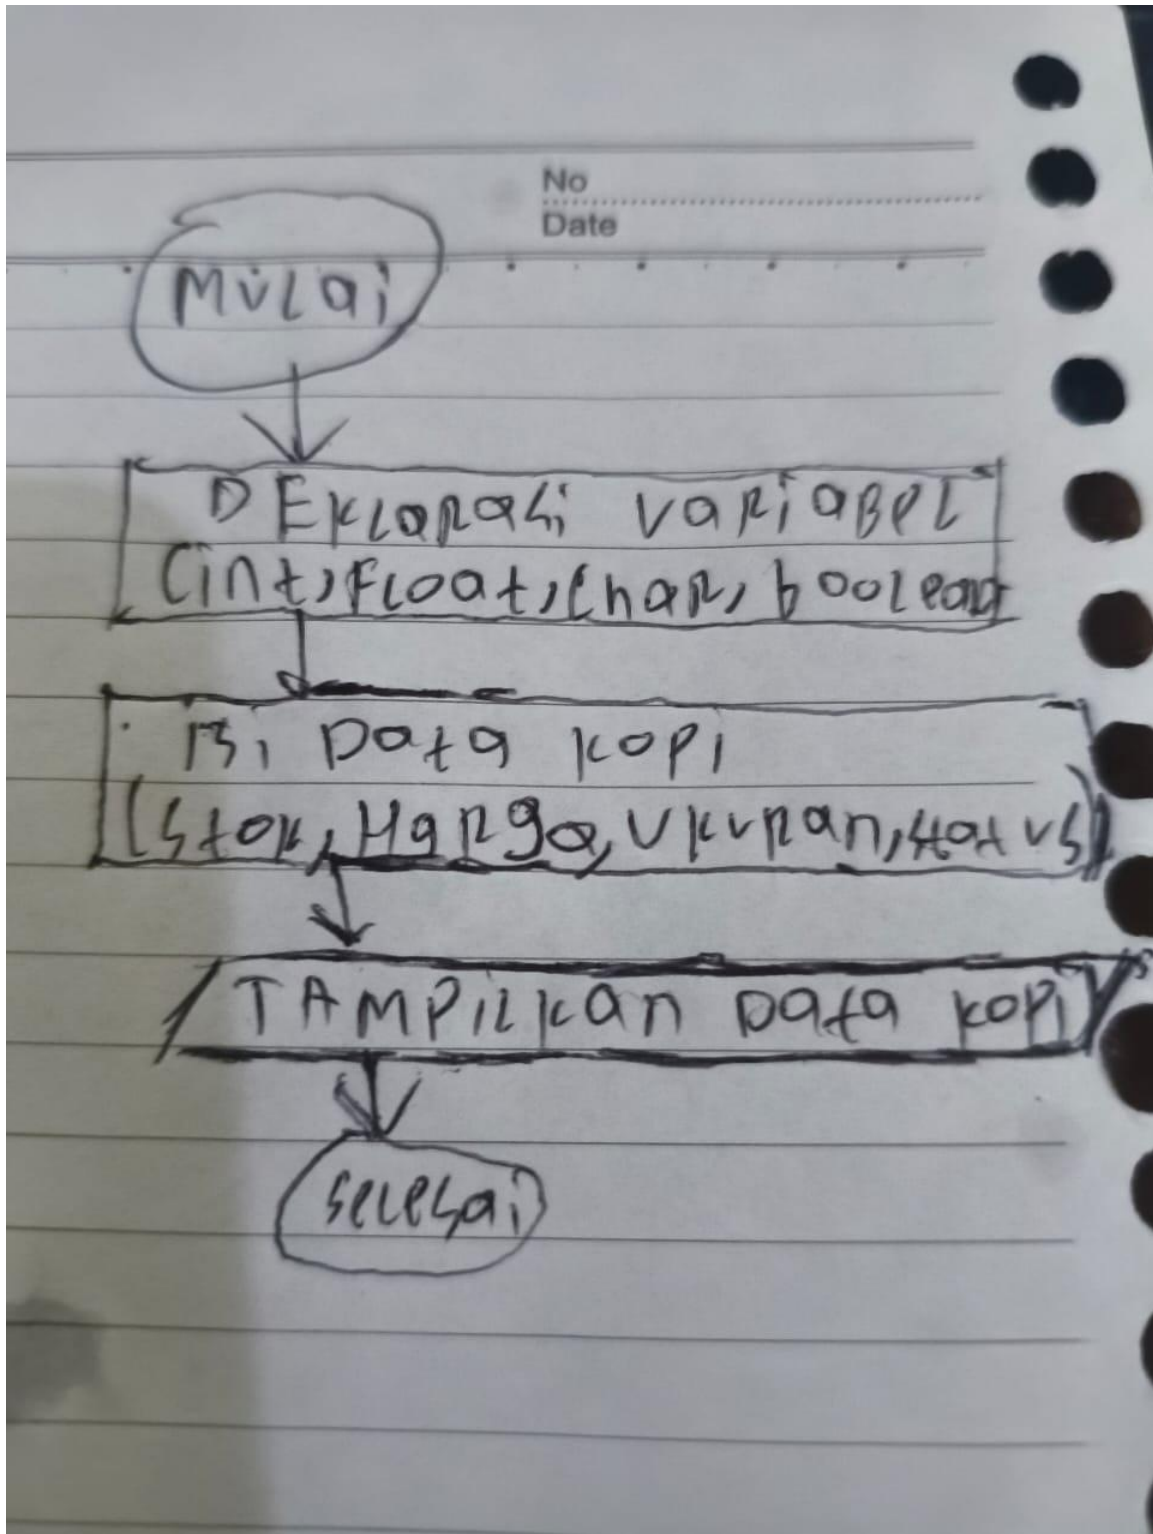 No
Date
Mulai
DEklarasi variabel
(int, Float, Char, boolean)
Isi Data kopi
(Stok, Harga, Ukuran, status)
TAMPilkan Data kopi
selesai